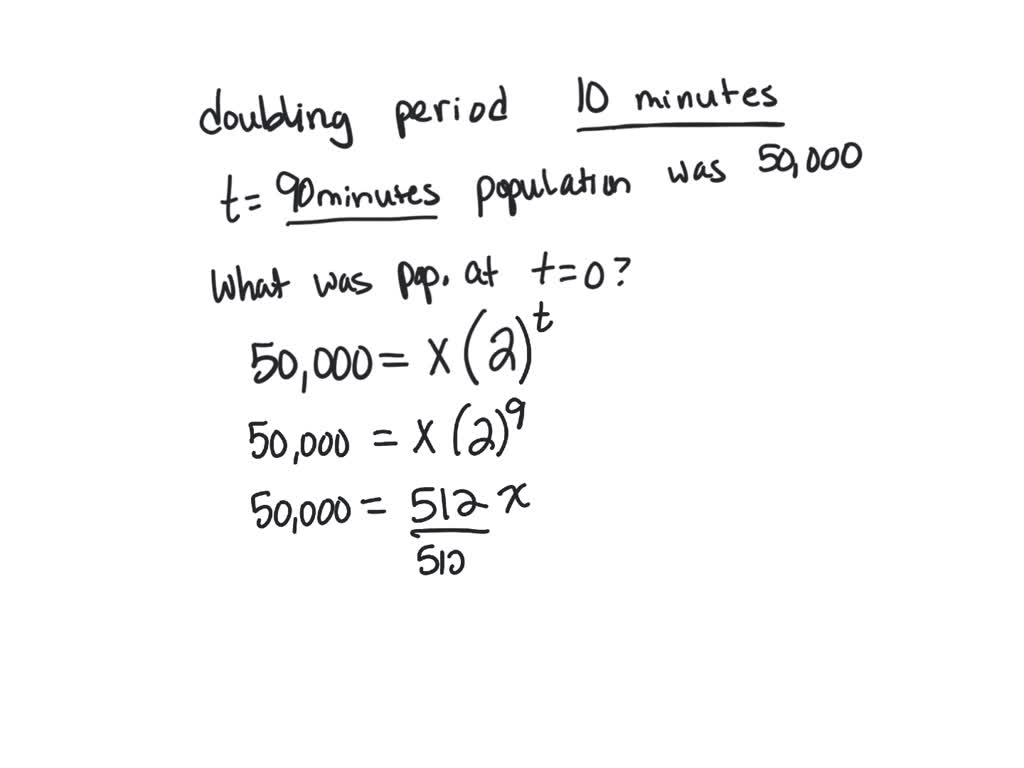 doubling period 10 minutes
t = 90 minutes population was 50,000
What was pop. at t = 0?
50,000 = x (2)^t
50,000 = x (2)^9
50,000 = 512 x
512